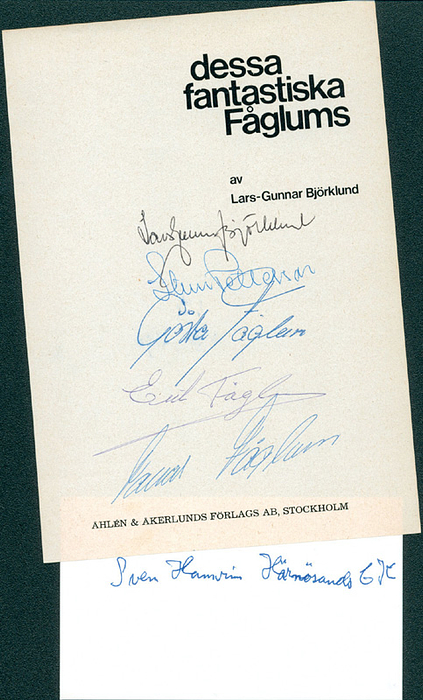 dessa
fantastiska
Fåglums
av
Lars-Gunnar Björklund
Lars Gunnar Björklund
Sture Pettersson
Gösta Fåglum
Erik Fåglum
Tomas Fåglum
AHLÉN & AKERLUNDS FÖRLAGS AB, STOCKHOLM
Sven Hamrin Härnösands CK